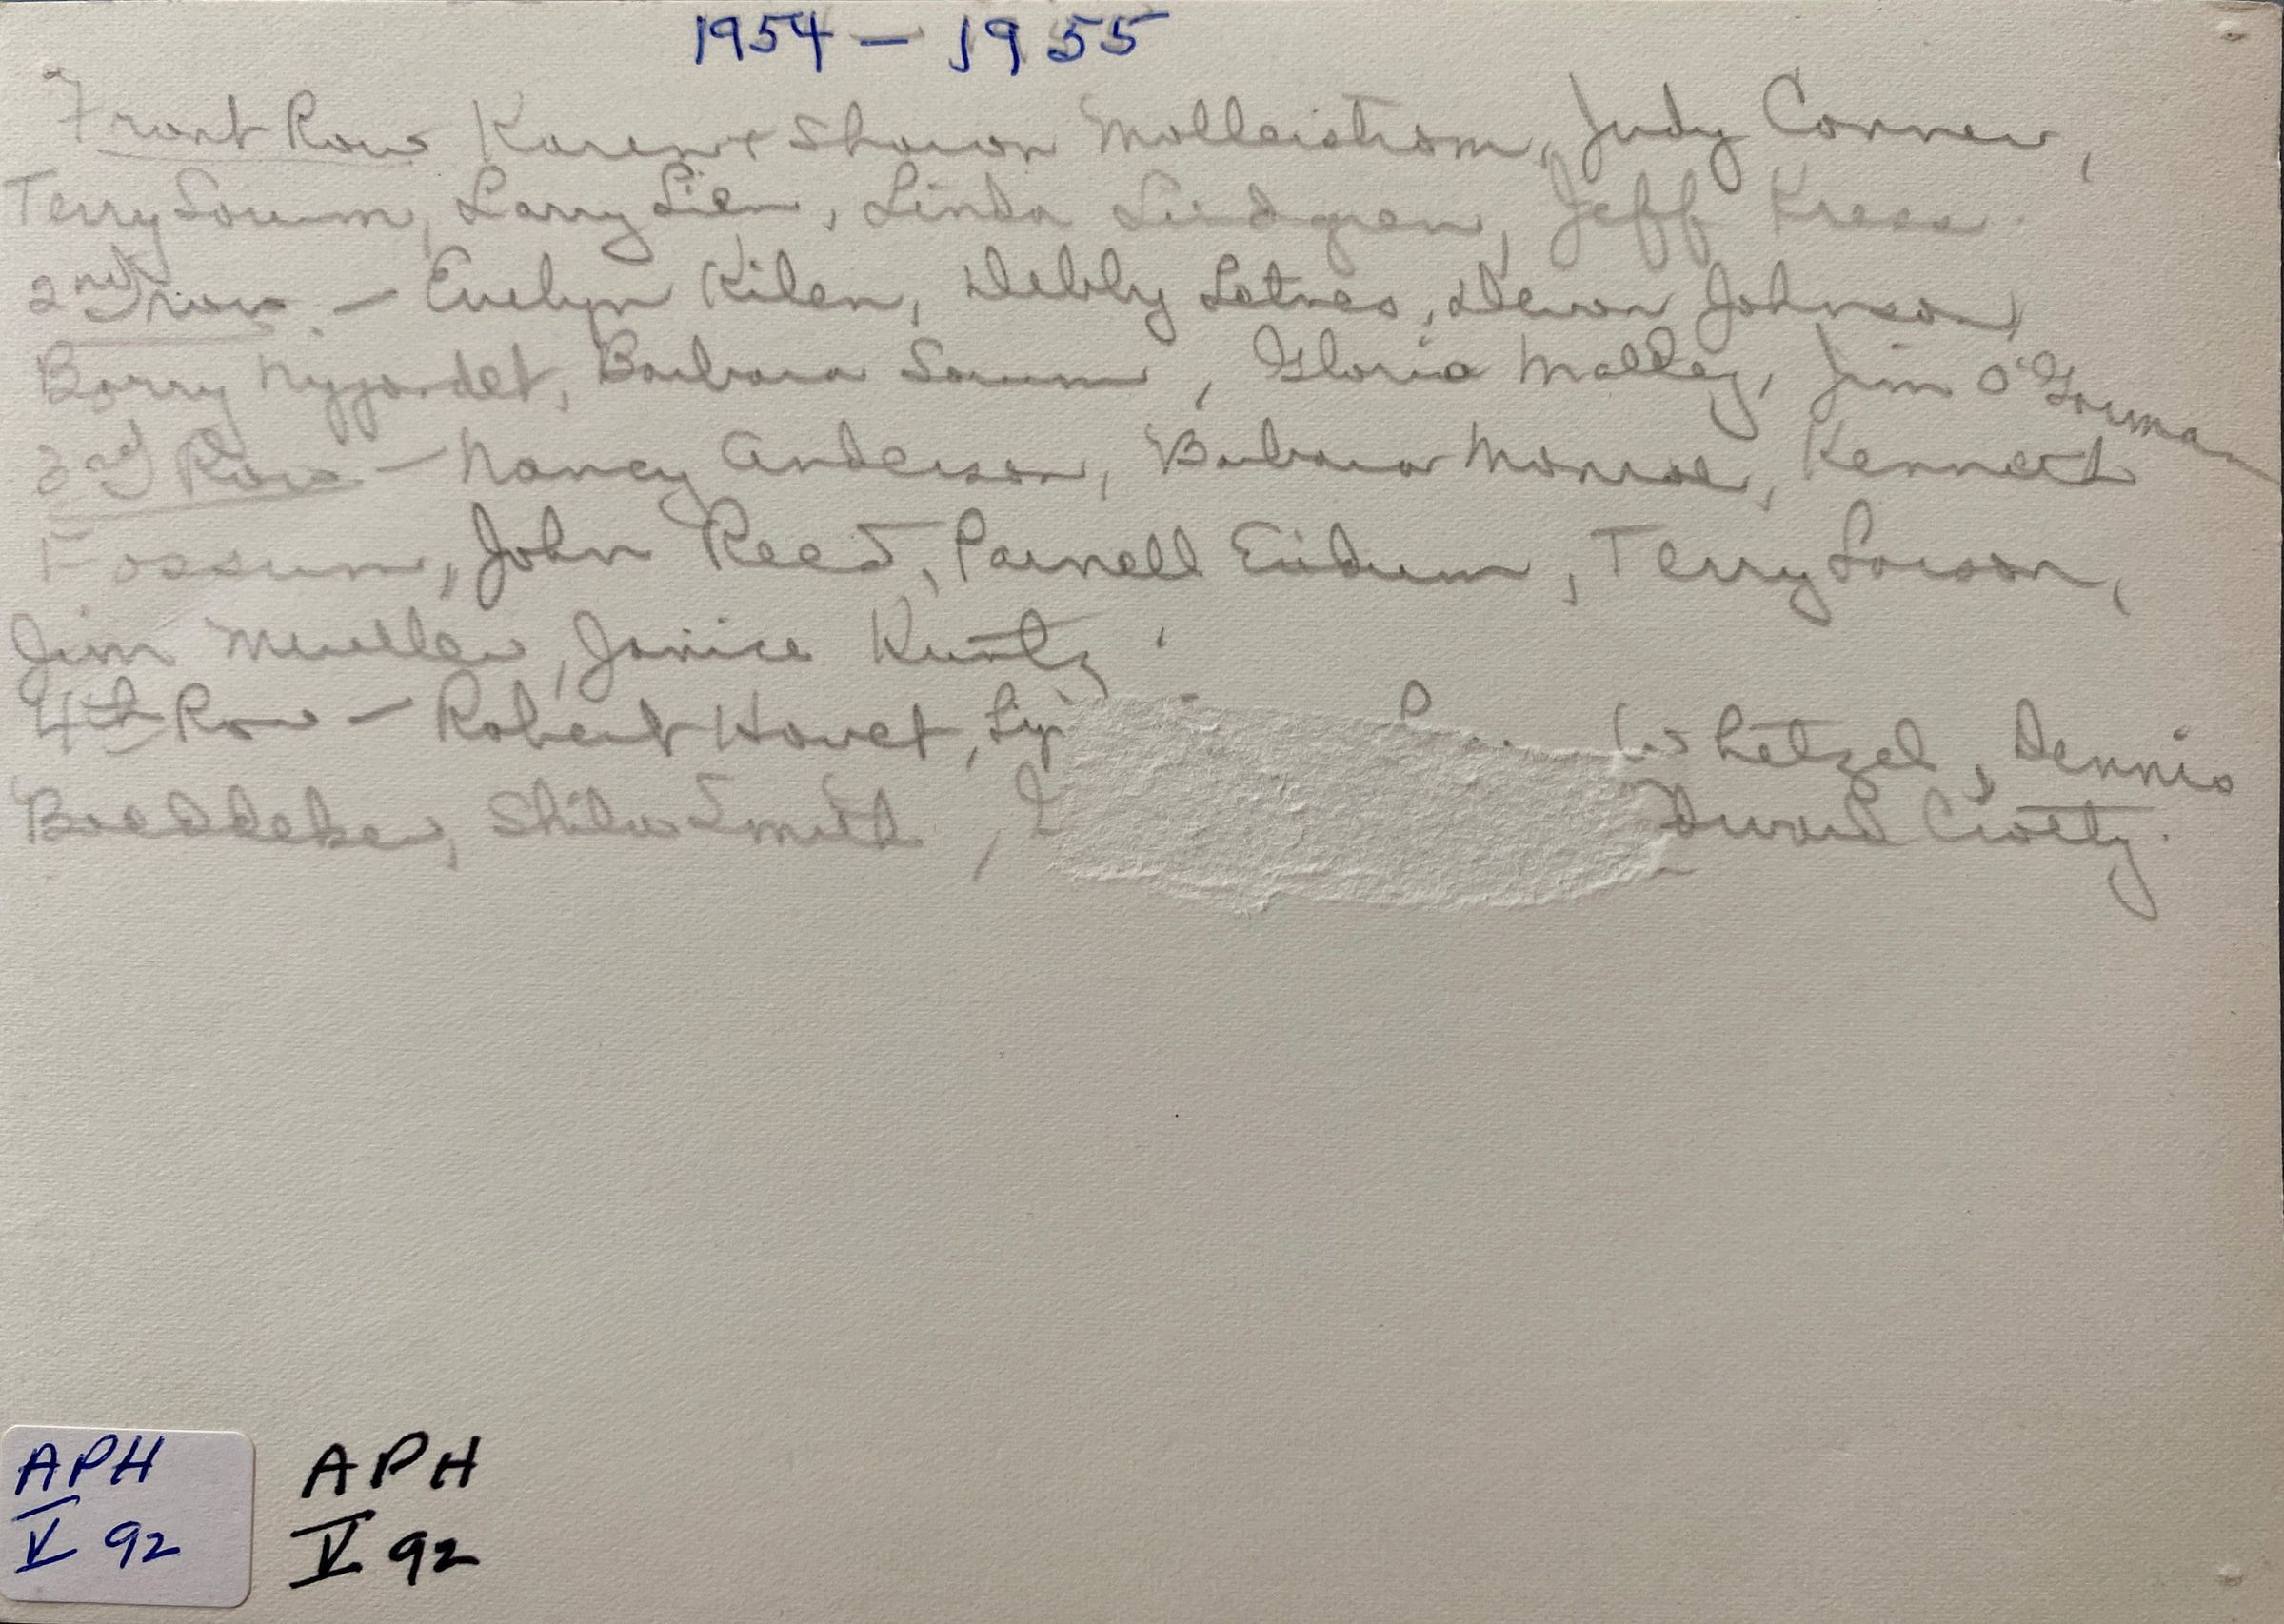 1954 - 1955
Front Row Karen + Sharon Mollerstrom, Judy Conner,
Terry Sorum, Larry Lien, Linda Lindgren, Jeff Kress
2nd row - Evelyn Kilen, Debby Lotnes, Devon Johnson,
Barry Nygordet, Barbara Sorum, Gloria Malley, Jim O'Gorman
3rd Row - Nancy Anderson, Barbara Monroe, Kenneth
Fossum, John Reed, Parnell Eidum, Terry Larson,
Jim Mueller, Janice Kuntz
4th Row - Robert Hovet, Whetzel, Dennis
Boeddeker, Smith, Crotty.
APH
V 92
APH
V 92